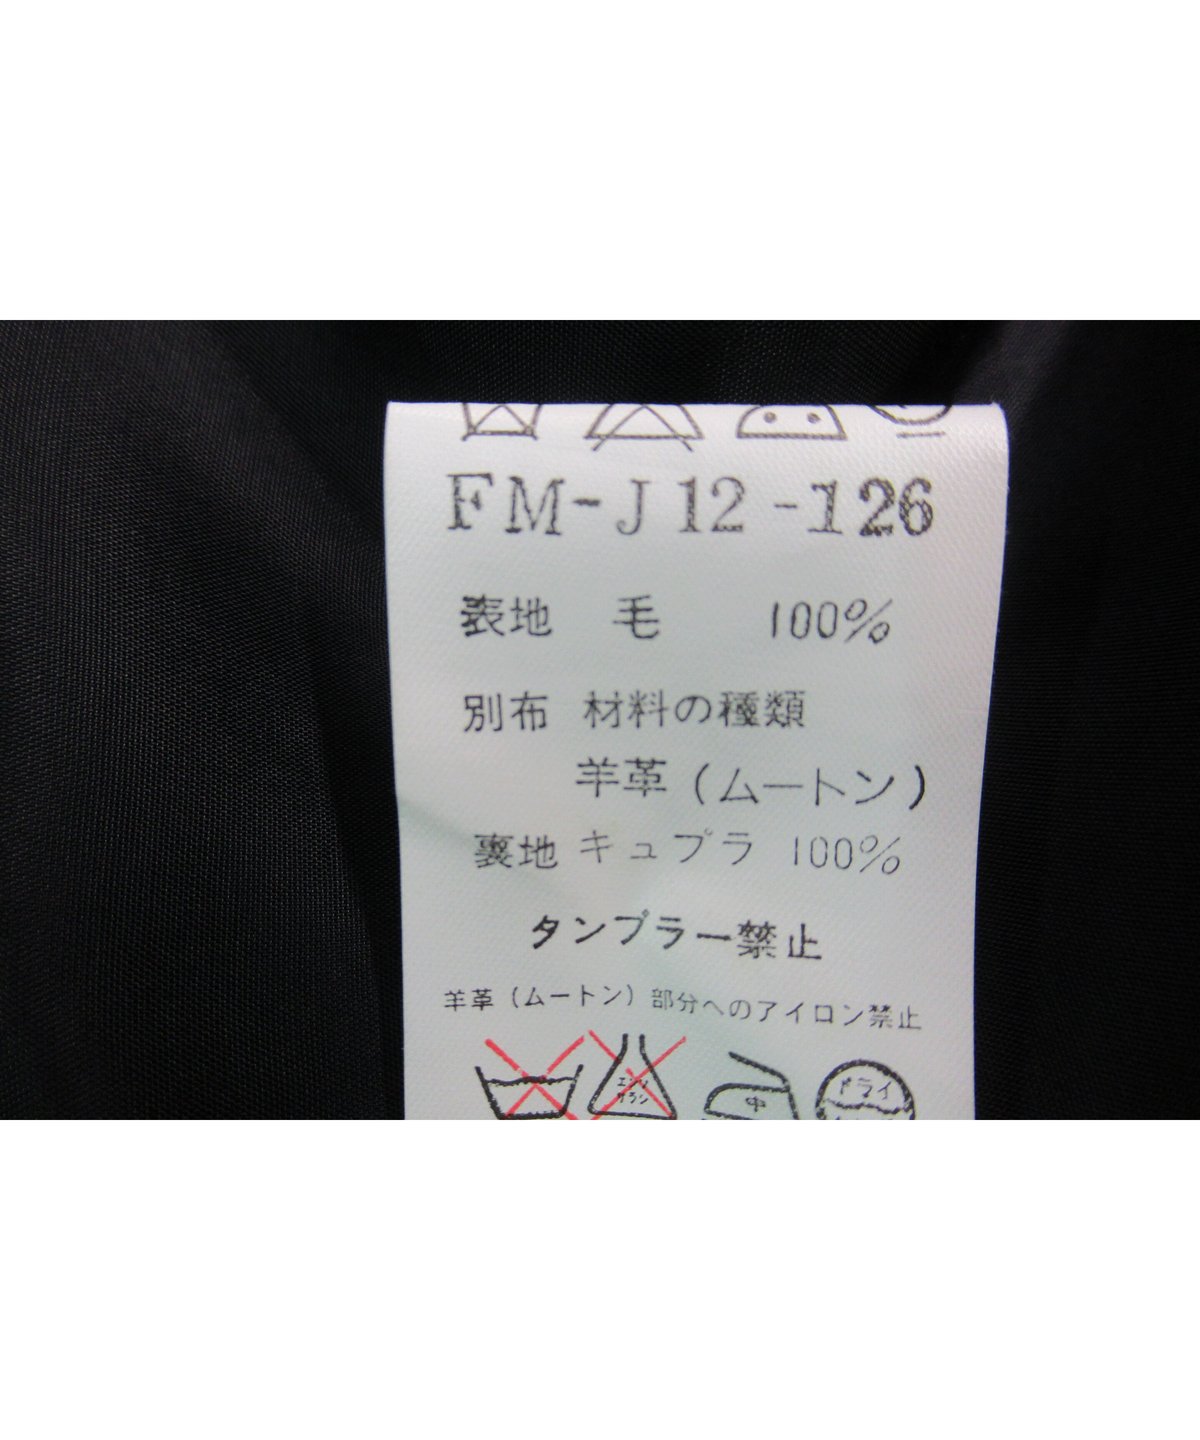 FM-J12-126
表地 毛 100%
別布 材料の種類
羊革(ムートン)
裏地 キュプラ 100%
タンブラー禁止
羊革(ムートン)部分へのアイロン禁止
エンソ
サラシ
中
ドライ